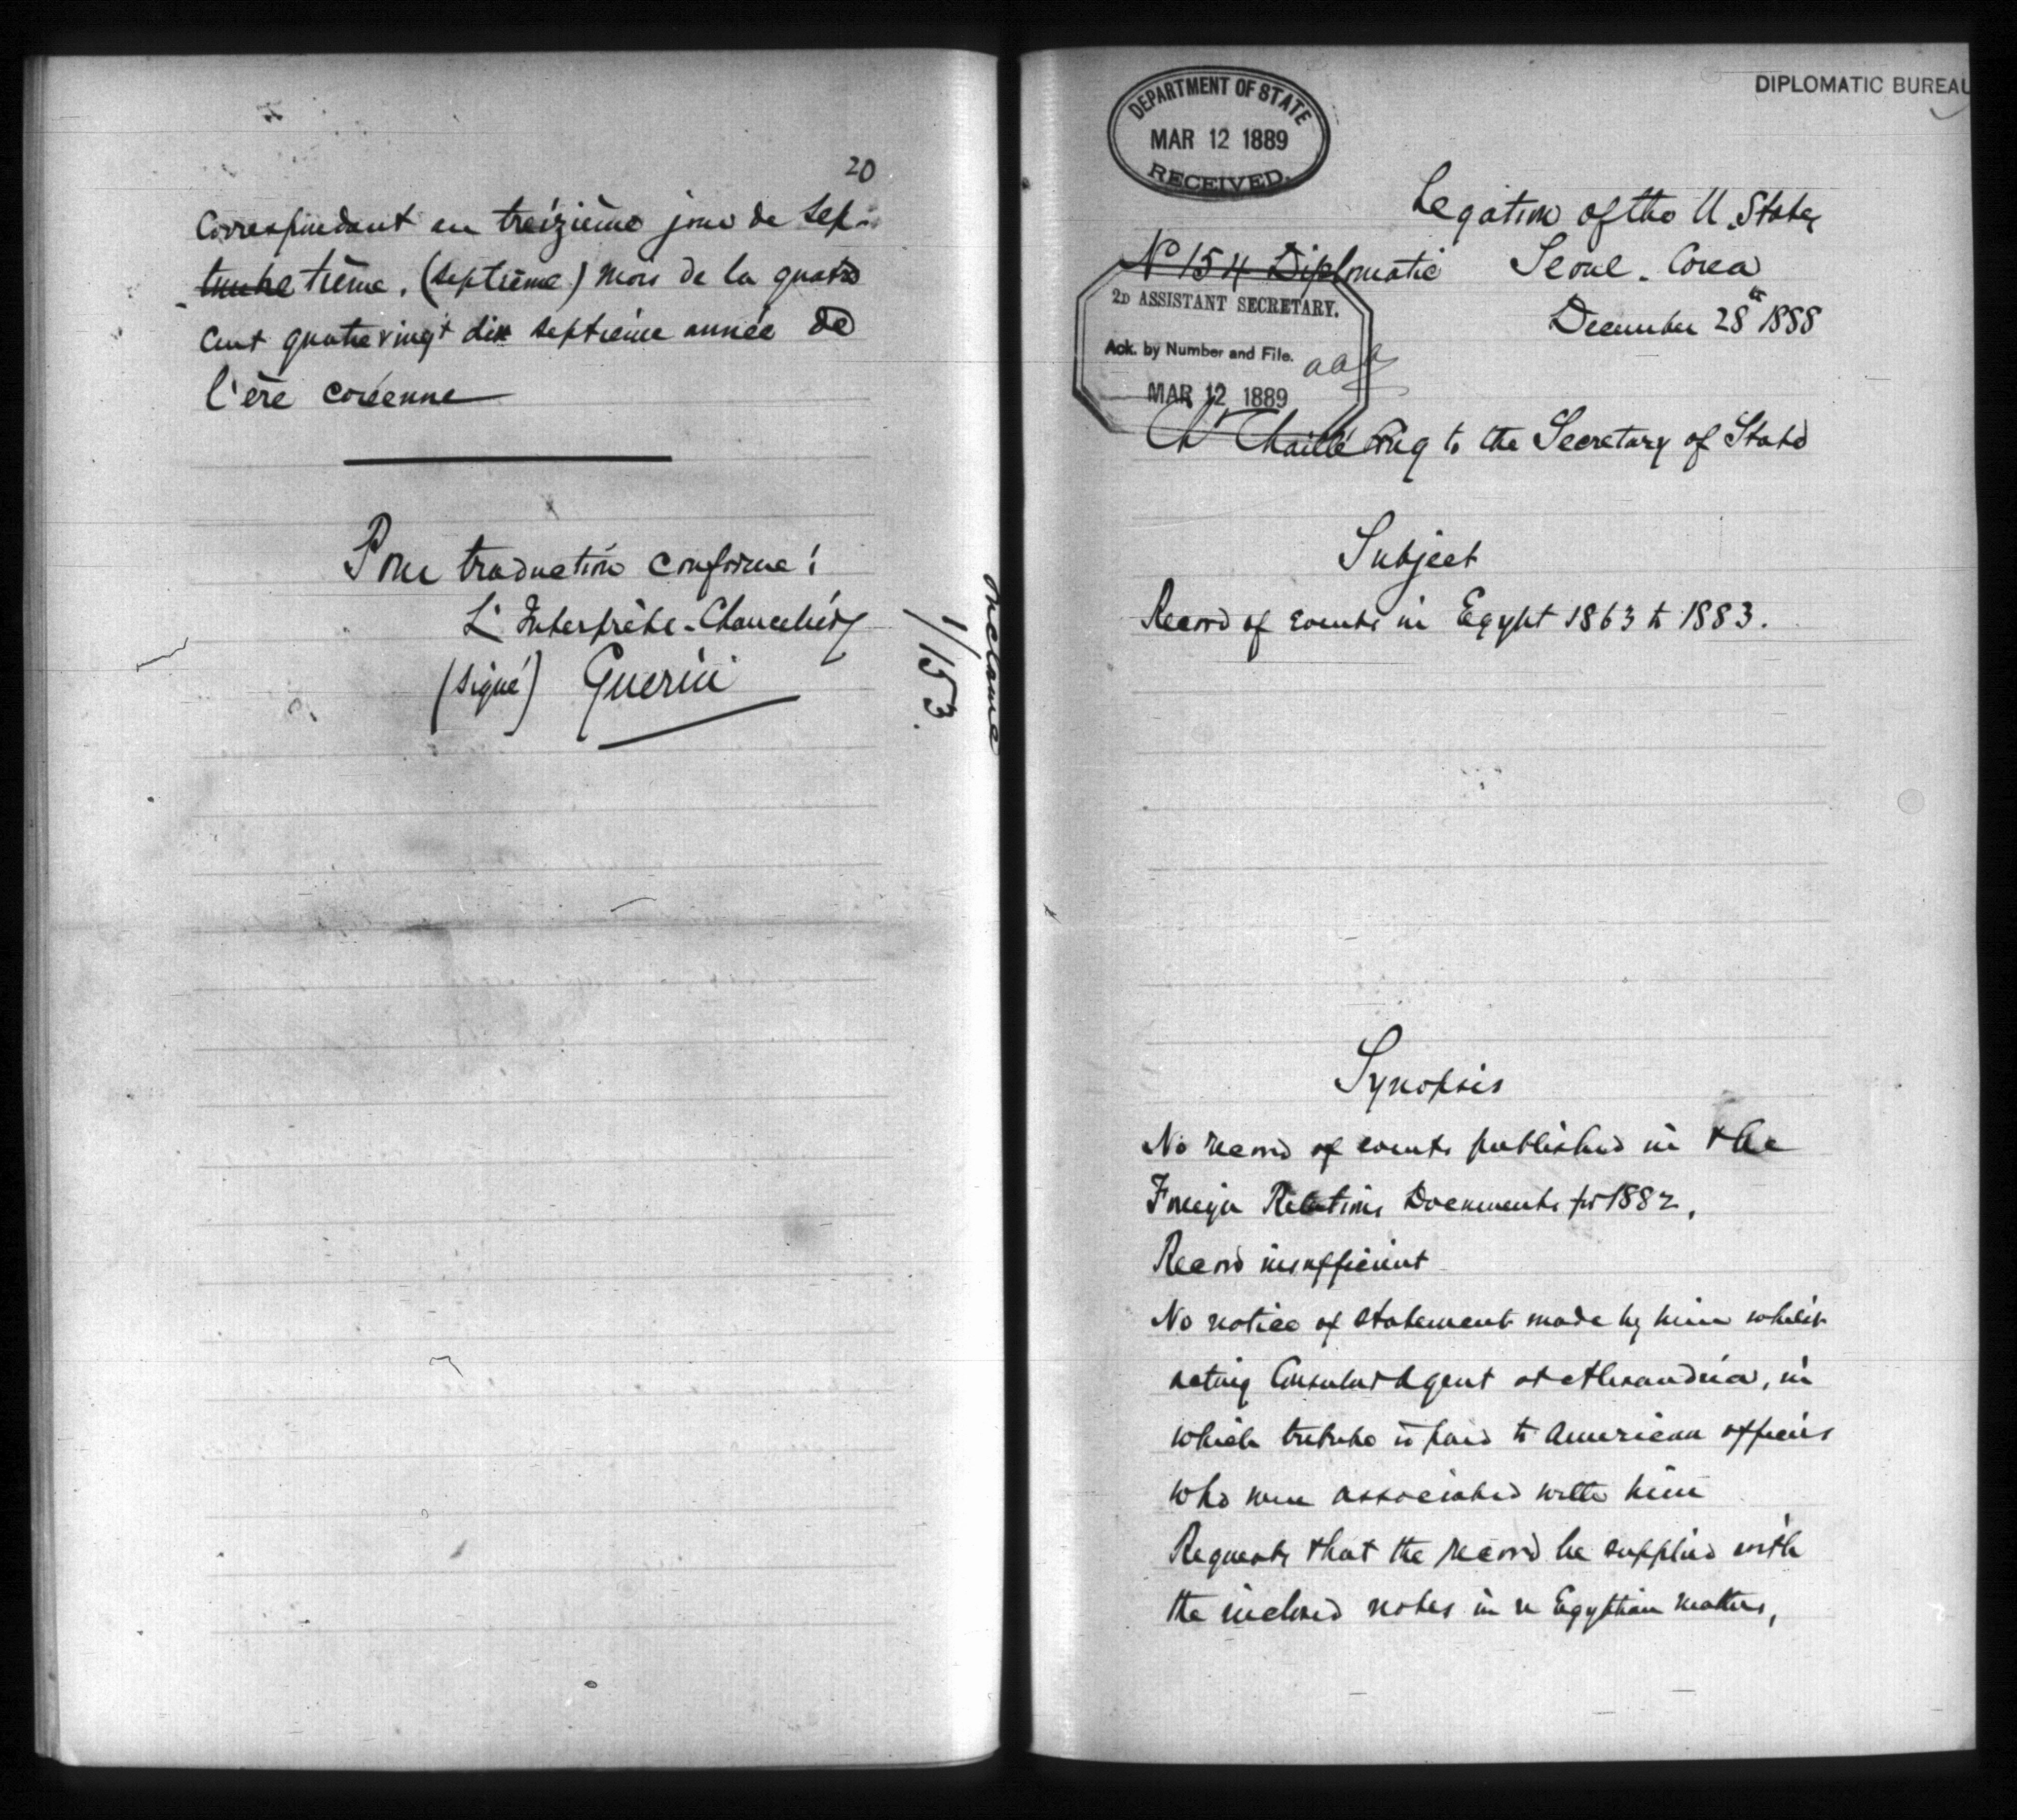 20
Correspondant en treizième jour de Sep-
tembre tième. (septième) mois de la quatre
cent quatre vingt dix septième année de
l'ère coréenne
Pour traduction conforme:
L'Interprète-Chancelier
(signé) Guerin
Inclosure
1/153.
DIPLOMATIC BUREAU
DEPARTMENT OF STATE
MAR 12 1889
RECEIVED.
Legation of the U. States
No 154 Diplomatic Seoul. Corea
December 28th 1888
2D ASSISTANT SECRETARY.
Ack. by Number and File.
aaa
MAR 12 1889
Ch. Chaillé Long to the Secretary of State
Subject
Record of events in Egypt 1863 to 1883.
Synopsis
No record of events published in the
Foreign Relations Documents for 1882.
Record insufficient
No notice of statement made by him whilst
acting Consular Agent at Alexandria, in
which tribute is paid to American officers
who were associated with him
Requests that the record be supplied with
the inclosed notes in re Egyptian matters,